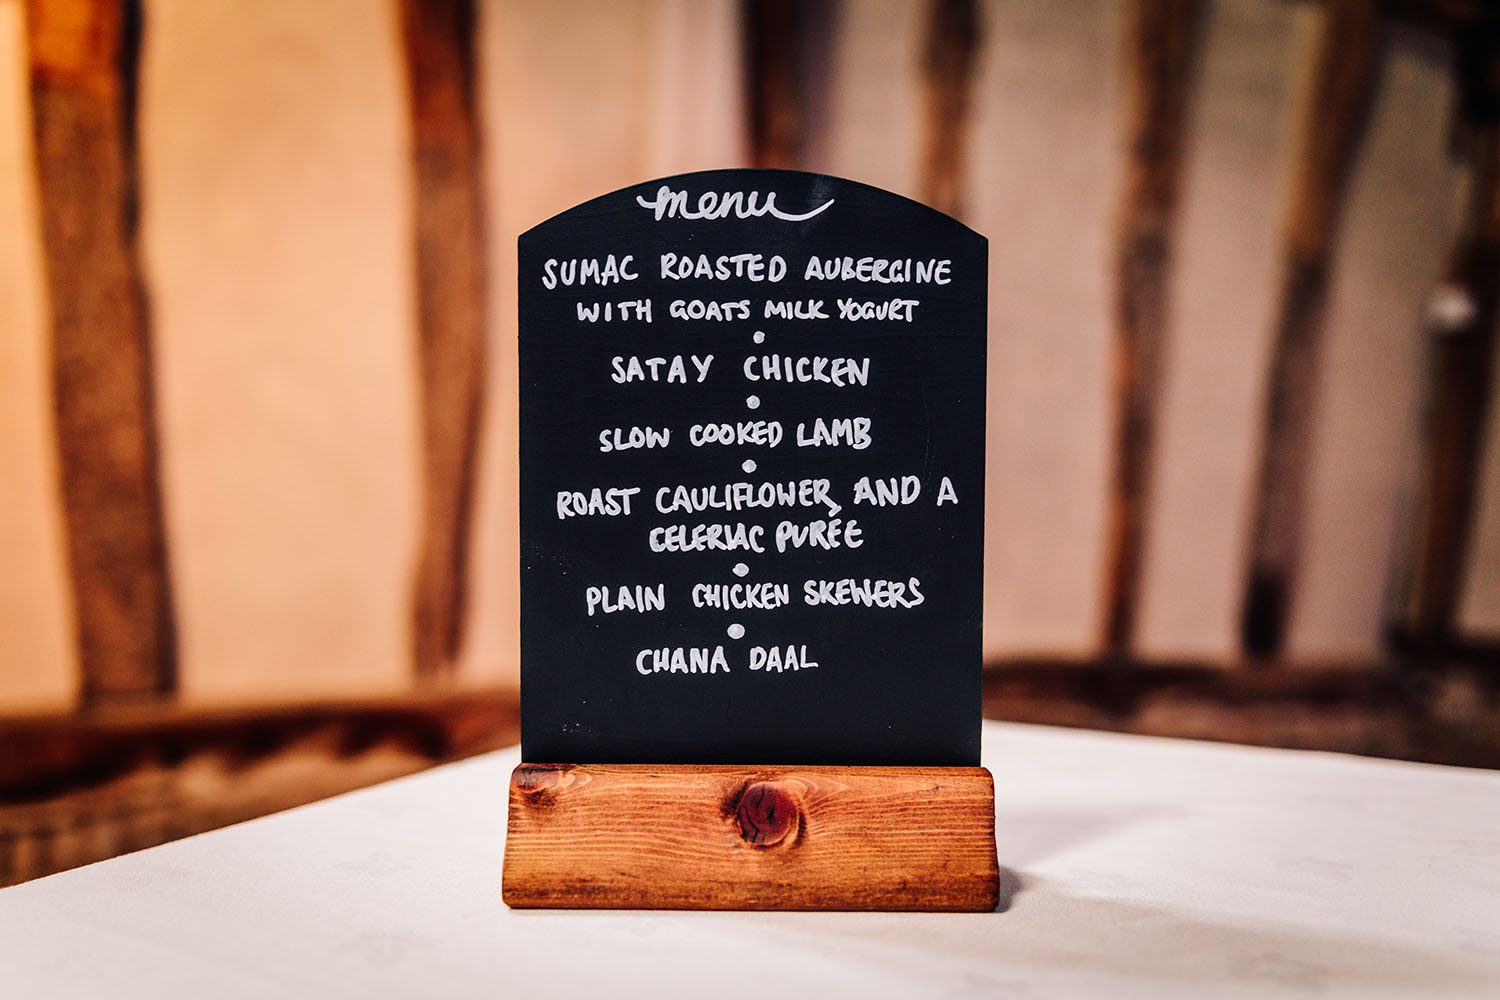 menu
SUMAC ROASTED AUBERGINE
WITH GOATS MILK YOGURT
•
SATAY CHICKEN
•
SLOW COOKED LAMB
•
ROAST CAULIFLOWER AND A
CELERIAC PURÉE
•
PLAIN CHICKEN SKEWERS
•
CHANA DAAL